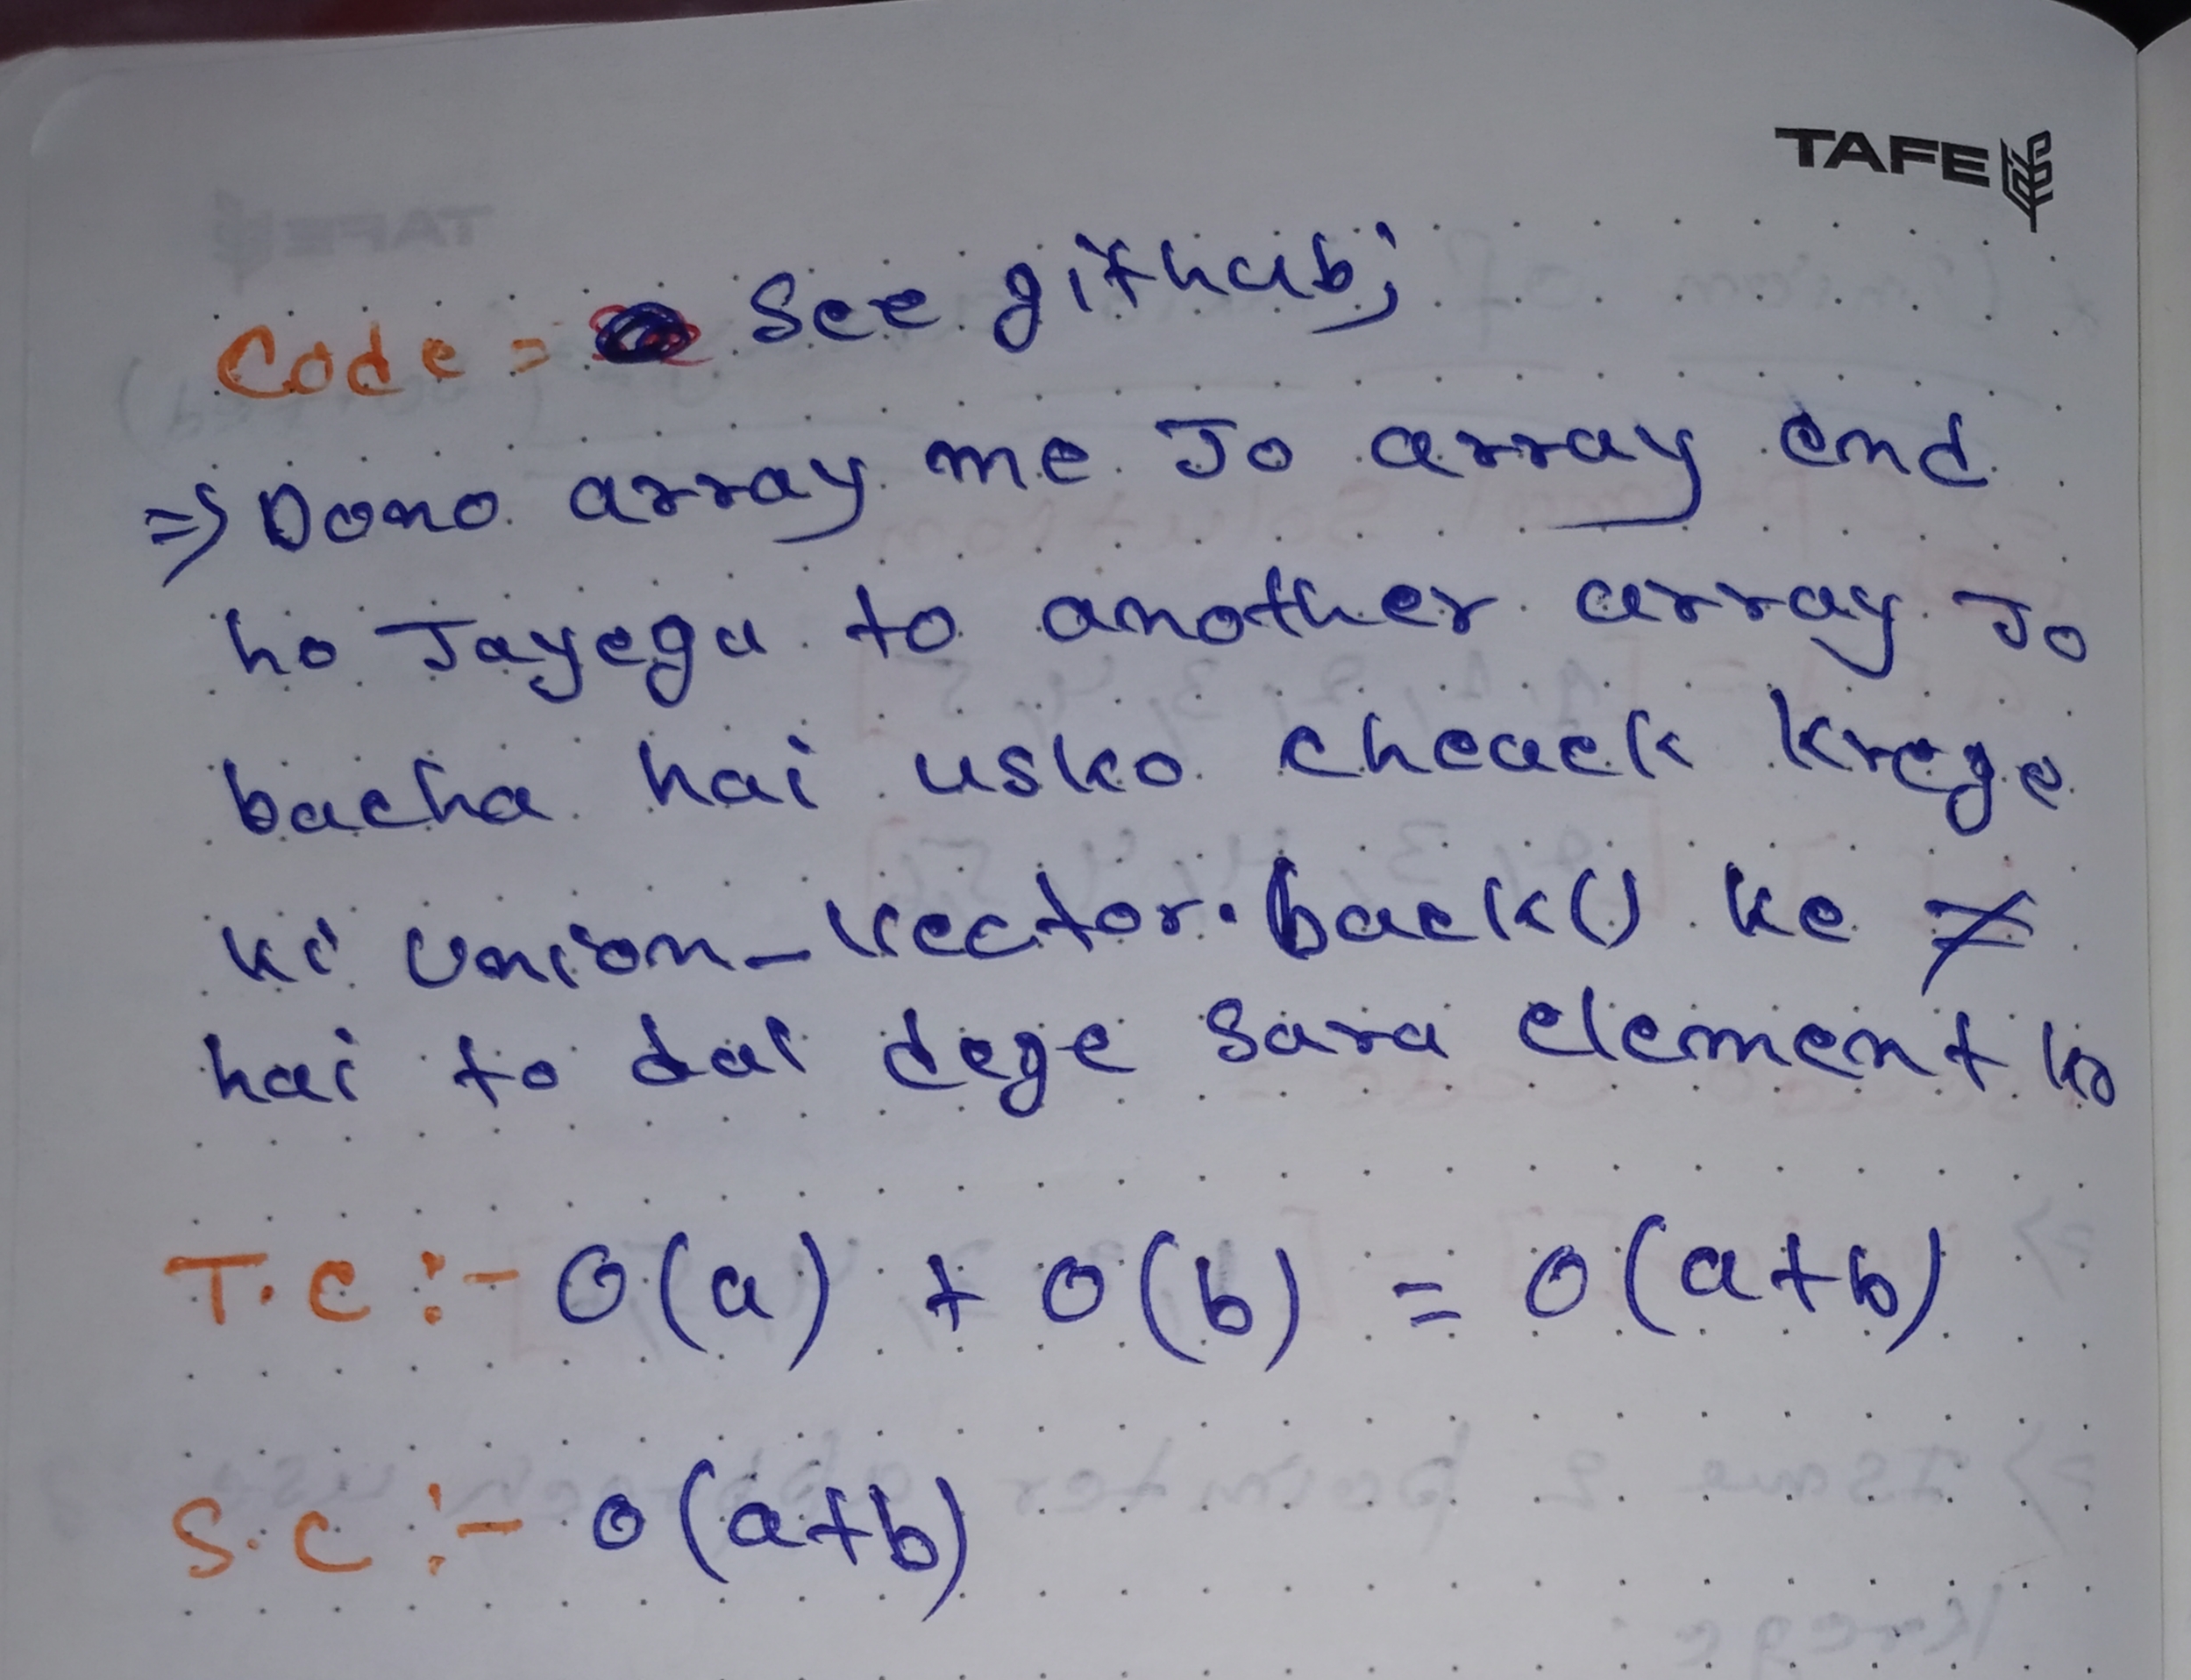 TAFE
Code = See github;
⇒ Dono array me Jo array end
ho Jayega to another array Jo
bacha hai usko cheack krege
ki union_vector.back() ke ≠
hai to dal dege sara element ko
T.C :- O(a) + O(b) = O(a+b)
S.C :- O(a+b)